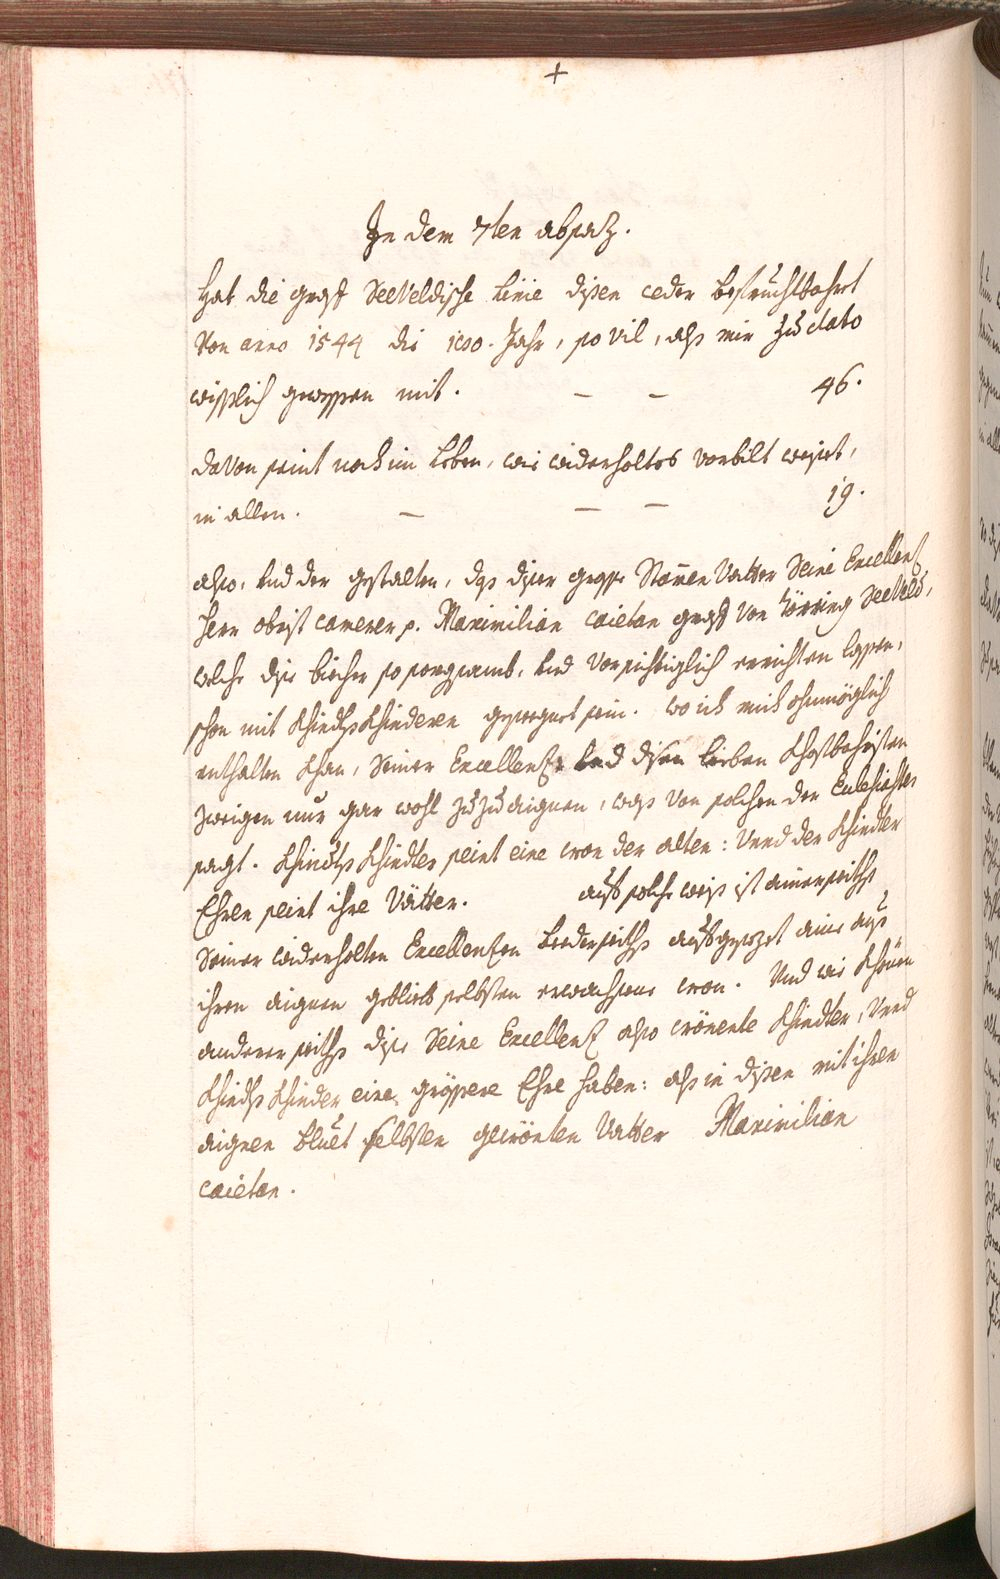 +
In dem 7ten absaz.
Hat die graff Seeveldische Linie disen ceder befruchtbahrt
Von anno 1544 die 200. Jahr, so vil, alß mir zu dato
wisslich gewessen mit. — — 46.
davon seint noch im Leben, wie widerholtes vorbilt weiset,
in allen. — — — 19.
also, und der gestalten, daß diser grosse Stamen Vatter Seine Excellenz
Herr obrist camerer p. Maximilian Caietan graff von Törring Seeveld,
welche dise biecher so sorgsamb, und vorsichtiglich errichten lassen,
schon mit Khindts Khinderen gesegnet sein. wo ich mich ohnmöglich
enthalten Khan, Seiner Excellenz und disen lieben Khostbahristen
zweigen nur gar wohl zuzuaignen, waß von solchen der Eclesiastes
sagt. Khindts Khindter seint eine cron der alten: Unnd der Khindter
Ehren seint ihre Vätter. auf solche weiß ist ainerseiths
Seiner widerholten Excellenzen beederseiths aufgesezet aine auß
ihren aignen geblieth selbsten erwachsene cron. Und wie Khönen
anderer seiths dise Seine Excellenz also crönente Khindter, Unnd
Khindts Khinder eine grössere Ehre haben: alß in disen mit ihren
aignen bluet selbsten gecrönten Vatter Maximilian
Caietan.